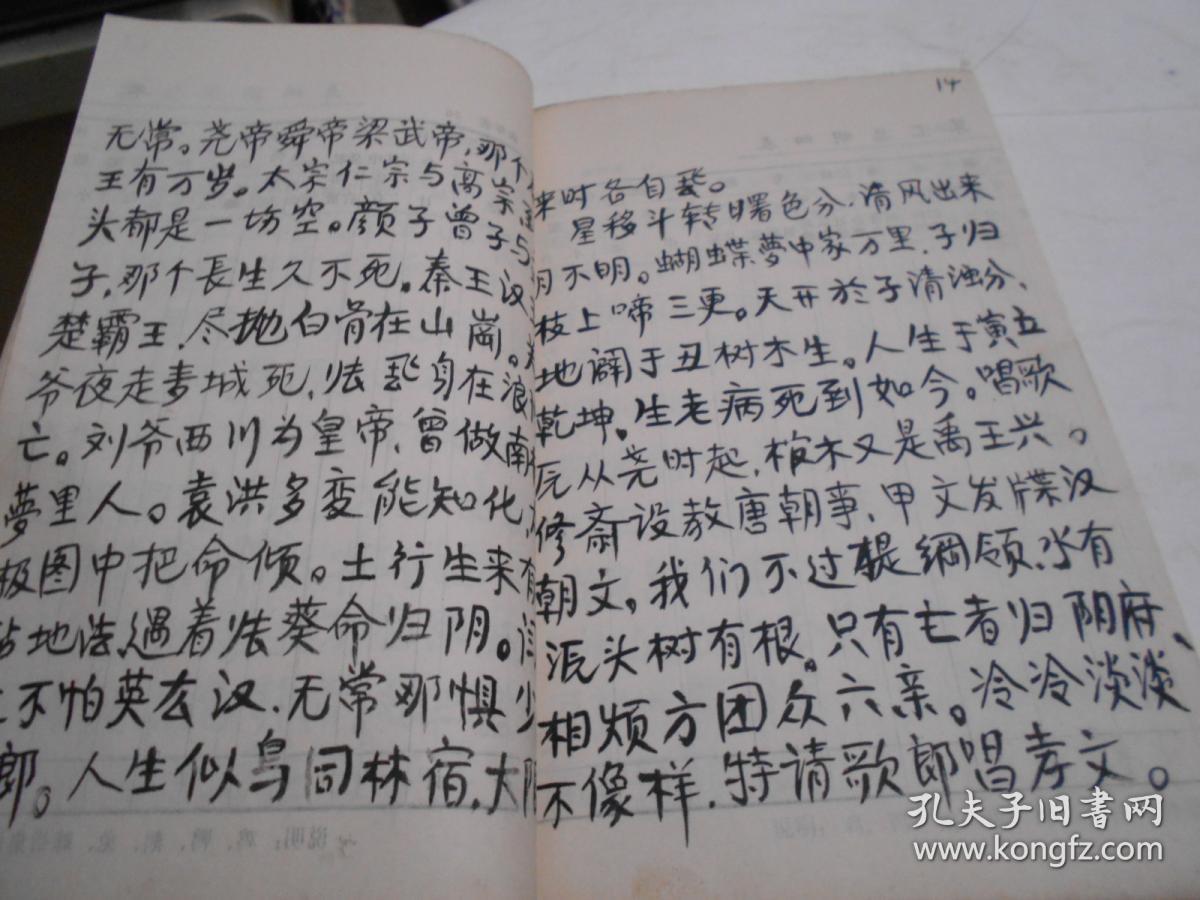 无常。尧帝舜帝梁武帝,那个
王有万岁。太宗仁宗与高宗
头都是一场空。颜子曾子与
子,那个長生久不死。秦王汉
楚霸王,尽抛白骨在山崗。
爷夜走麦城死,张飞身在浪
亡。刘爷西川为皇帝,曾做南
夢里人。袁洪多变能知化,
极图中把命倾。土行生来有
钻地法,遇着张葵命归阴。
不怕英太汉,无常那惧少
郎。人生似鸟同林宿,大限
14
来时各自飞。
星移斗转曙色分,清风出来
月不明。蝴蝶夢中家万里,子归
枝上啼三更。天开於子清浊分,
地闢于丑树木生。人生于寅立
乾坤。生老病死到如今。唱歌
元从尧时起,棺木又是禹王兴。
修斋设教唐朝事,甲文发牒汉
朝文,我们不过提綱领,水有
派头树有根。只有亡者归阴府、
相烦方团众六亲。冷冷淡淡
不像样,特请歌郎唱孝文。
孔夫子旧书网
www.kongfz.com